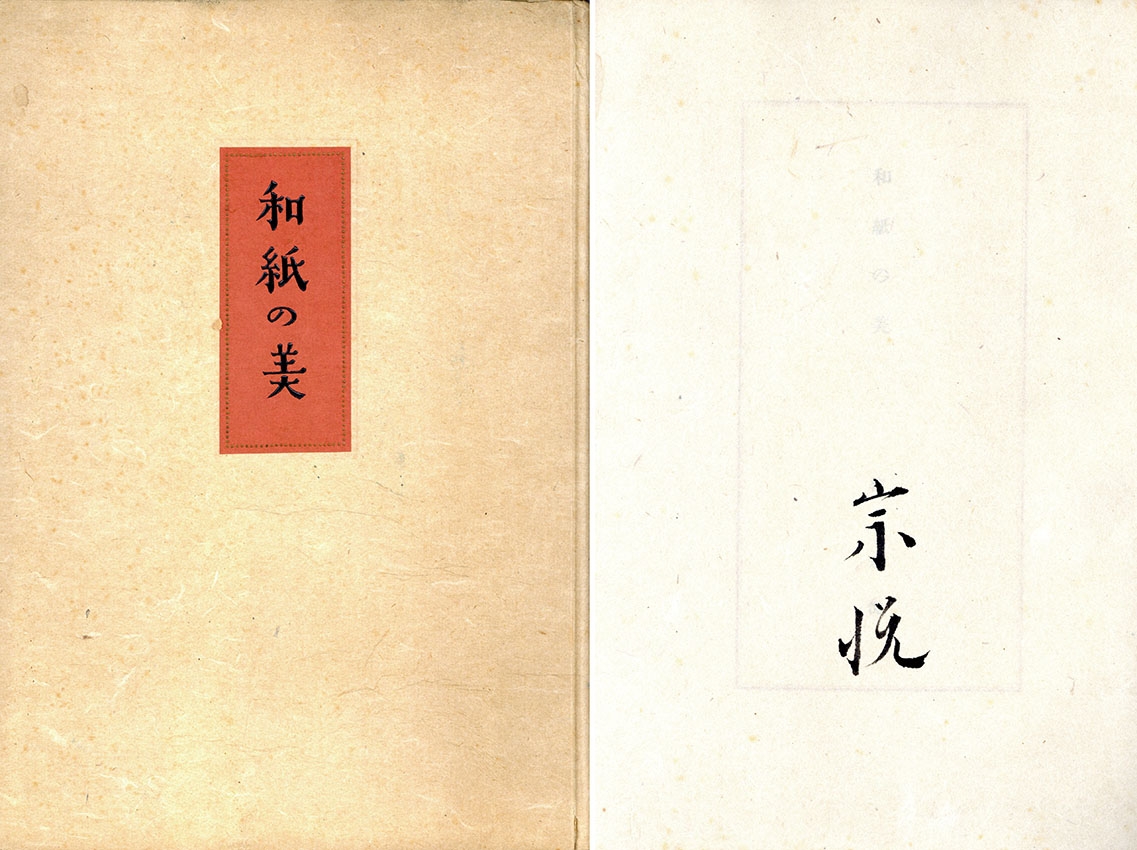 和紙の美
和紙の美
宗悦